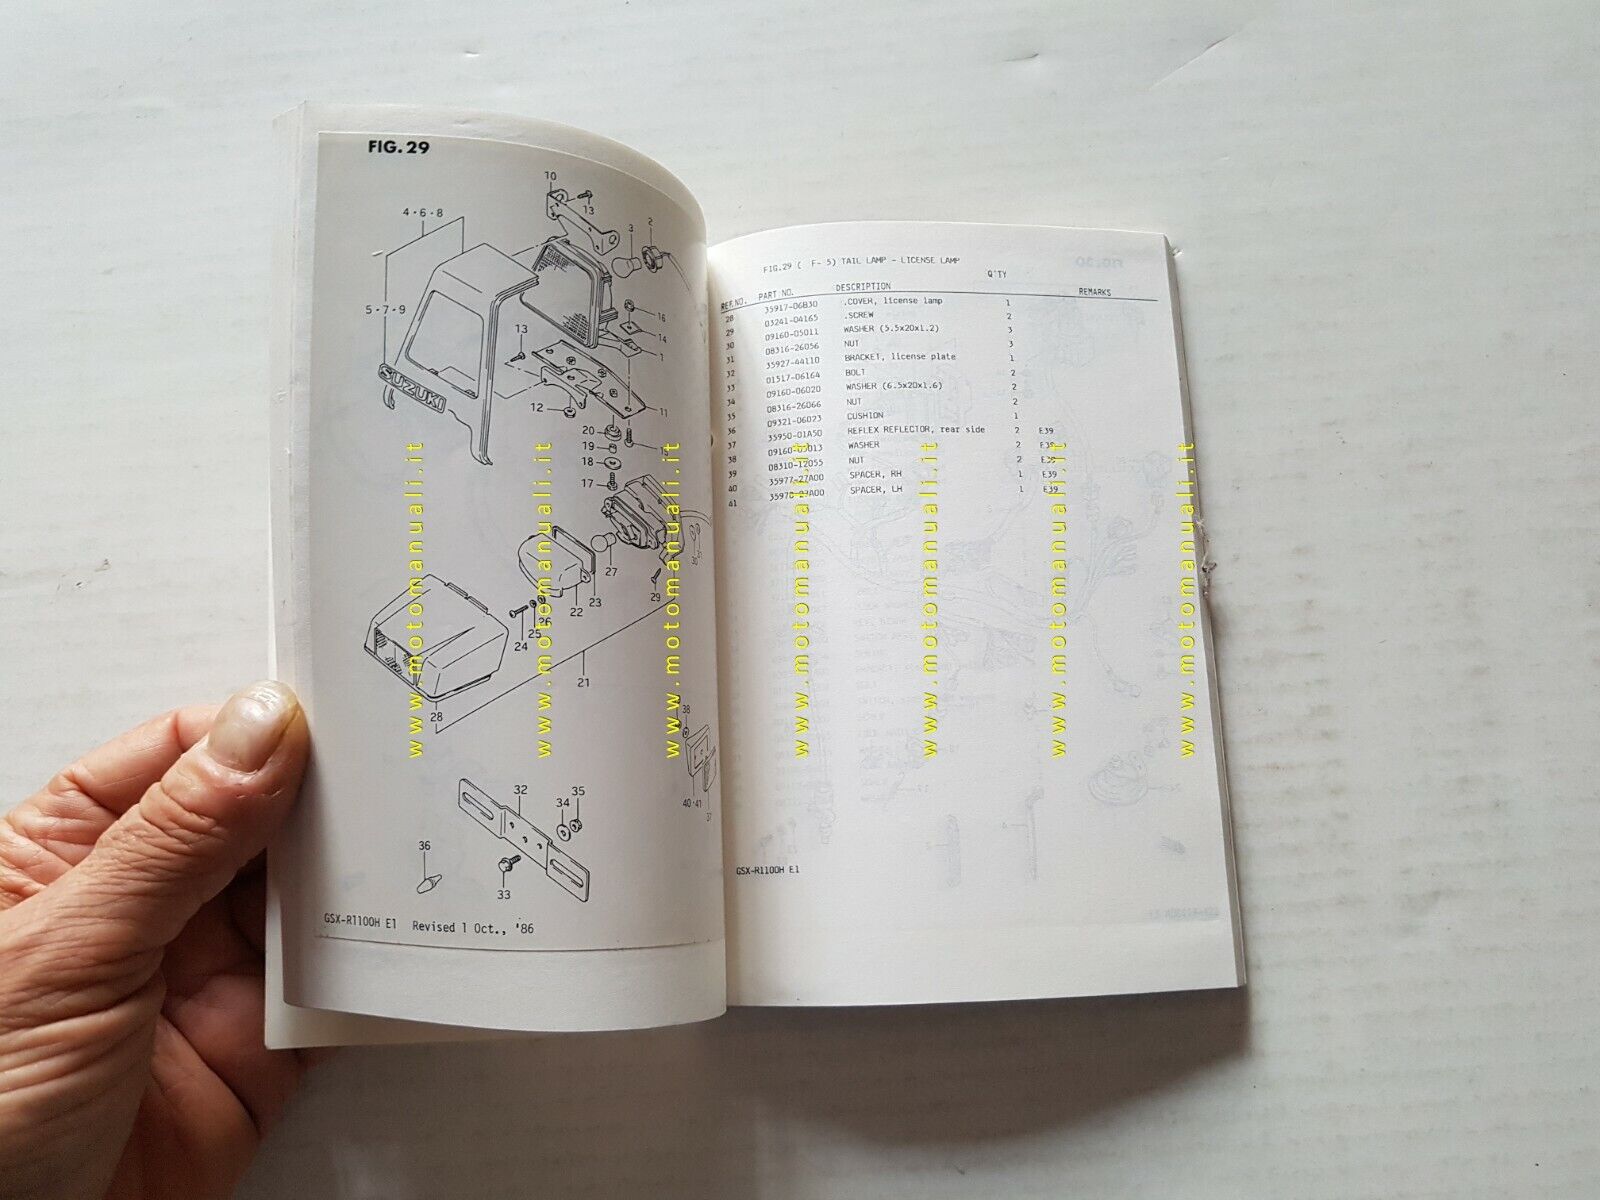 FIG.29
10
13
4·6·8
3
2
5·7·9
16
13
14
1
SUZUKI
12
11
20
15
19
18
17
27
30
31
29
22
23
26
25
24
21
28
38
40·41
37
32
35
34
36
33
GSX-R1100H E1 Revised 1 Oct., '86
FIG.29 ( F- 5) TAIL LAMP - LICENSE LAMP
REF.NO. PART NO. DESCRIPTION Q'TY REMARKS
28 35917-06B30 .COVER, license lamp 1
29 03241-04165 .SCREW 2
30 09160-05011 WASHER (5.5x20x1.2) 3
31 08316-26056 NUT 3
32 35927-44110 BRACKET, license plate 1
33 01517-06164 BOLT 2
34 09160-06020 WASHER (6.5x20x1.6) 2
35 08316-26066 NUT 2
36 09321-06023 CUSHION 1
37 35950-01A50 REFLEX REFLECTOR, rear side 2 E39
38 09160-05013 WASHER 2 E39
39 08310-12055 NUT 2 E39
40 35977-27A00 SPACER, RH 1 E39
41 35978-27A00 SPACER, LH 1 E39
GSX-R1100H E1
www.motomanuali.it
www.motomanuali.it
www.motomanuali.it
www.motomanuali.it
www.motomanuali.it
www.motomanuali.it
www.motomanuali.it